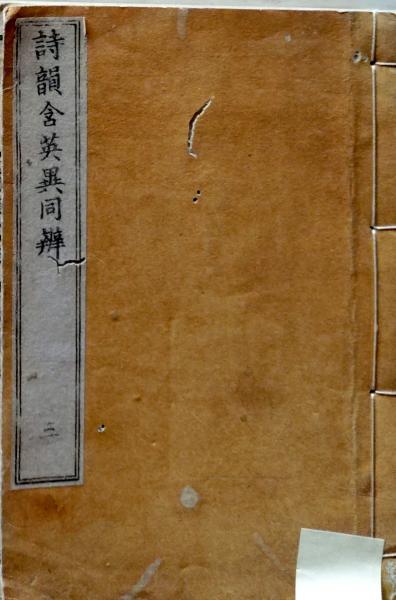 詩韻含英異同辨
三